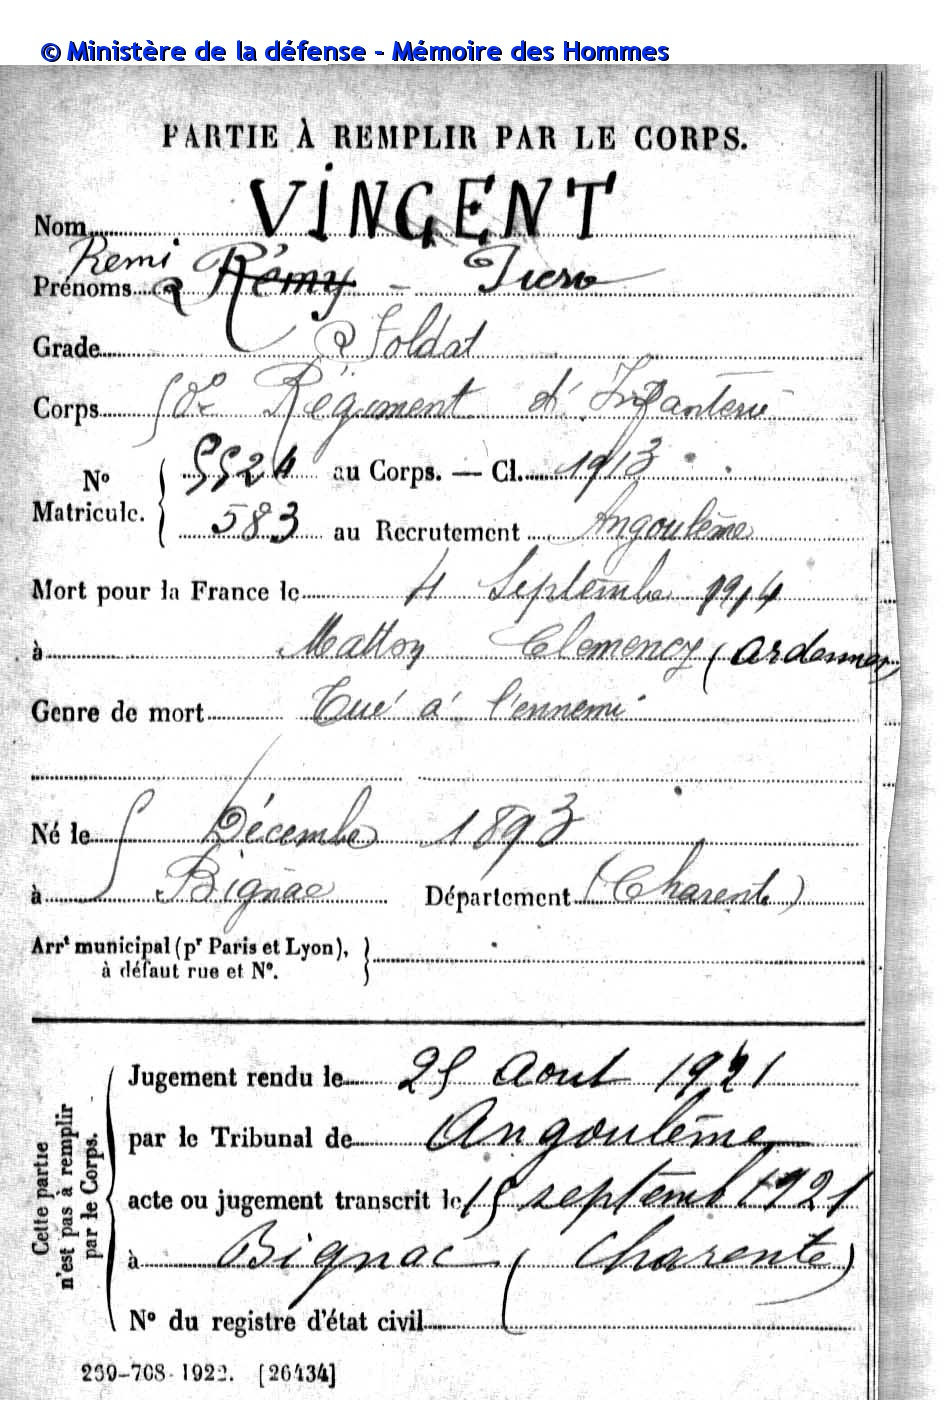 © Ministère de la défense - Mémoire des Hommes
PARTIE À REMPLIR PAR LE CORPS.
Nom VINCENT
Remi
Prénoms Rémy -
Grade 2e Soldat
Corps Régiment d'Infanterie
Nº
Matricule.
5524 au Corps. — Cl. 1913
583 au Recrutement Angoulême
Mort pour la France le 4 Septembre 1914
à Matton Clemency (Ardennes)
Genre de mort Tué à l'ennemi
Né le Décembre 1893
à Bignac Département (Charente)
Arrt municipal (pr Paris et Lyon),
à défaut rue et Nº.
Cette partie
n'est pas à remplir
par le Corps.
Jugement rendu le 25 Aout 1921
par le Tribunal de Angoulême
acte ou jugement transcrit le 15 septembre 1921
à Bignac (Charente)
Nº du registre d'état civil
1922. [26434]